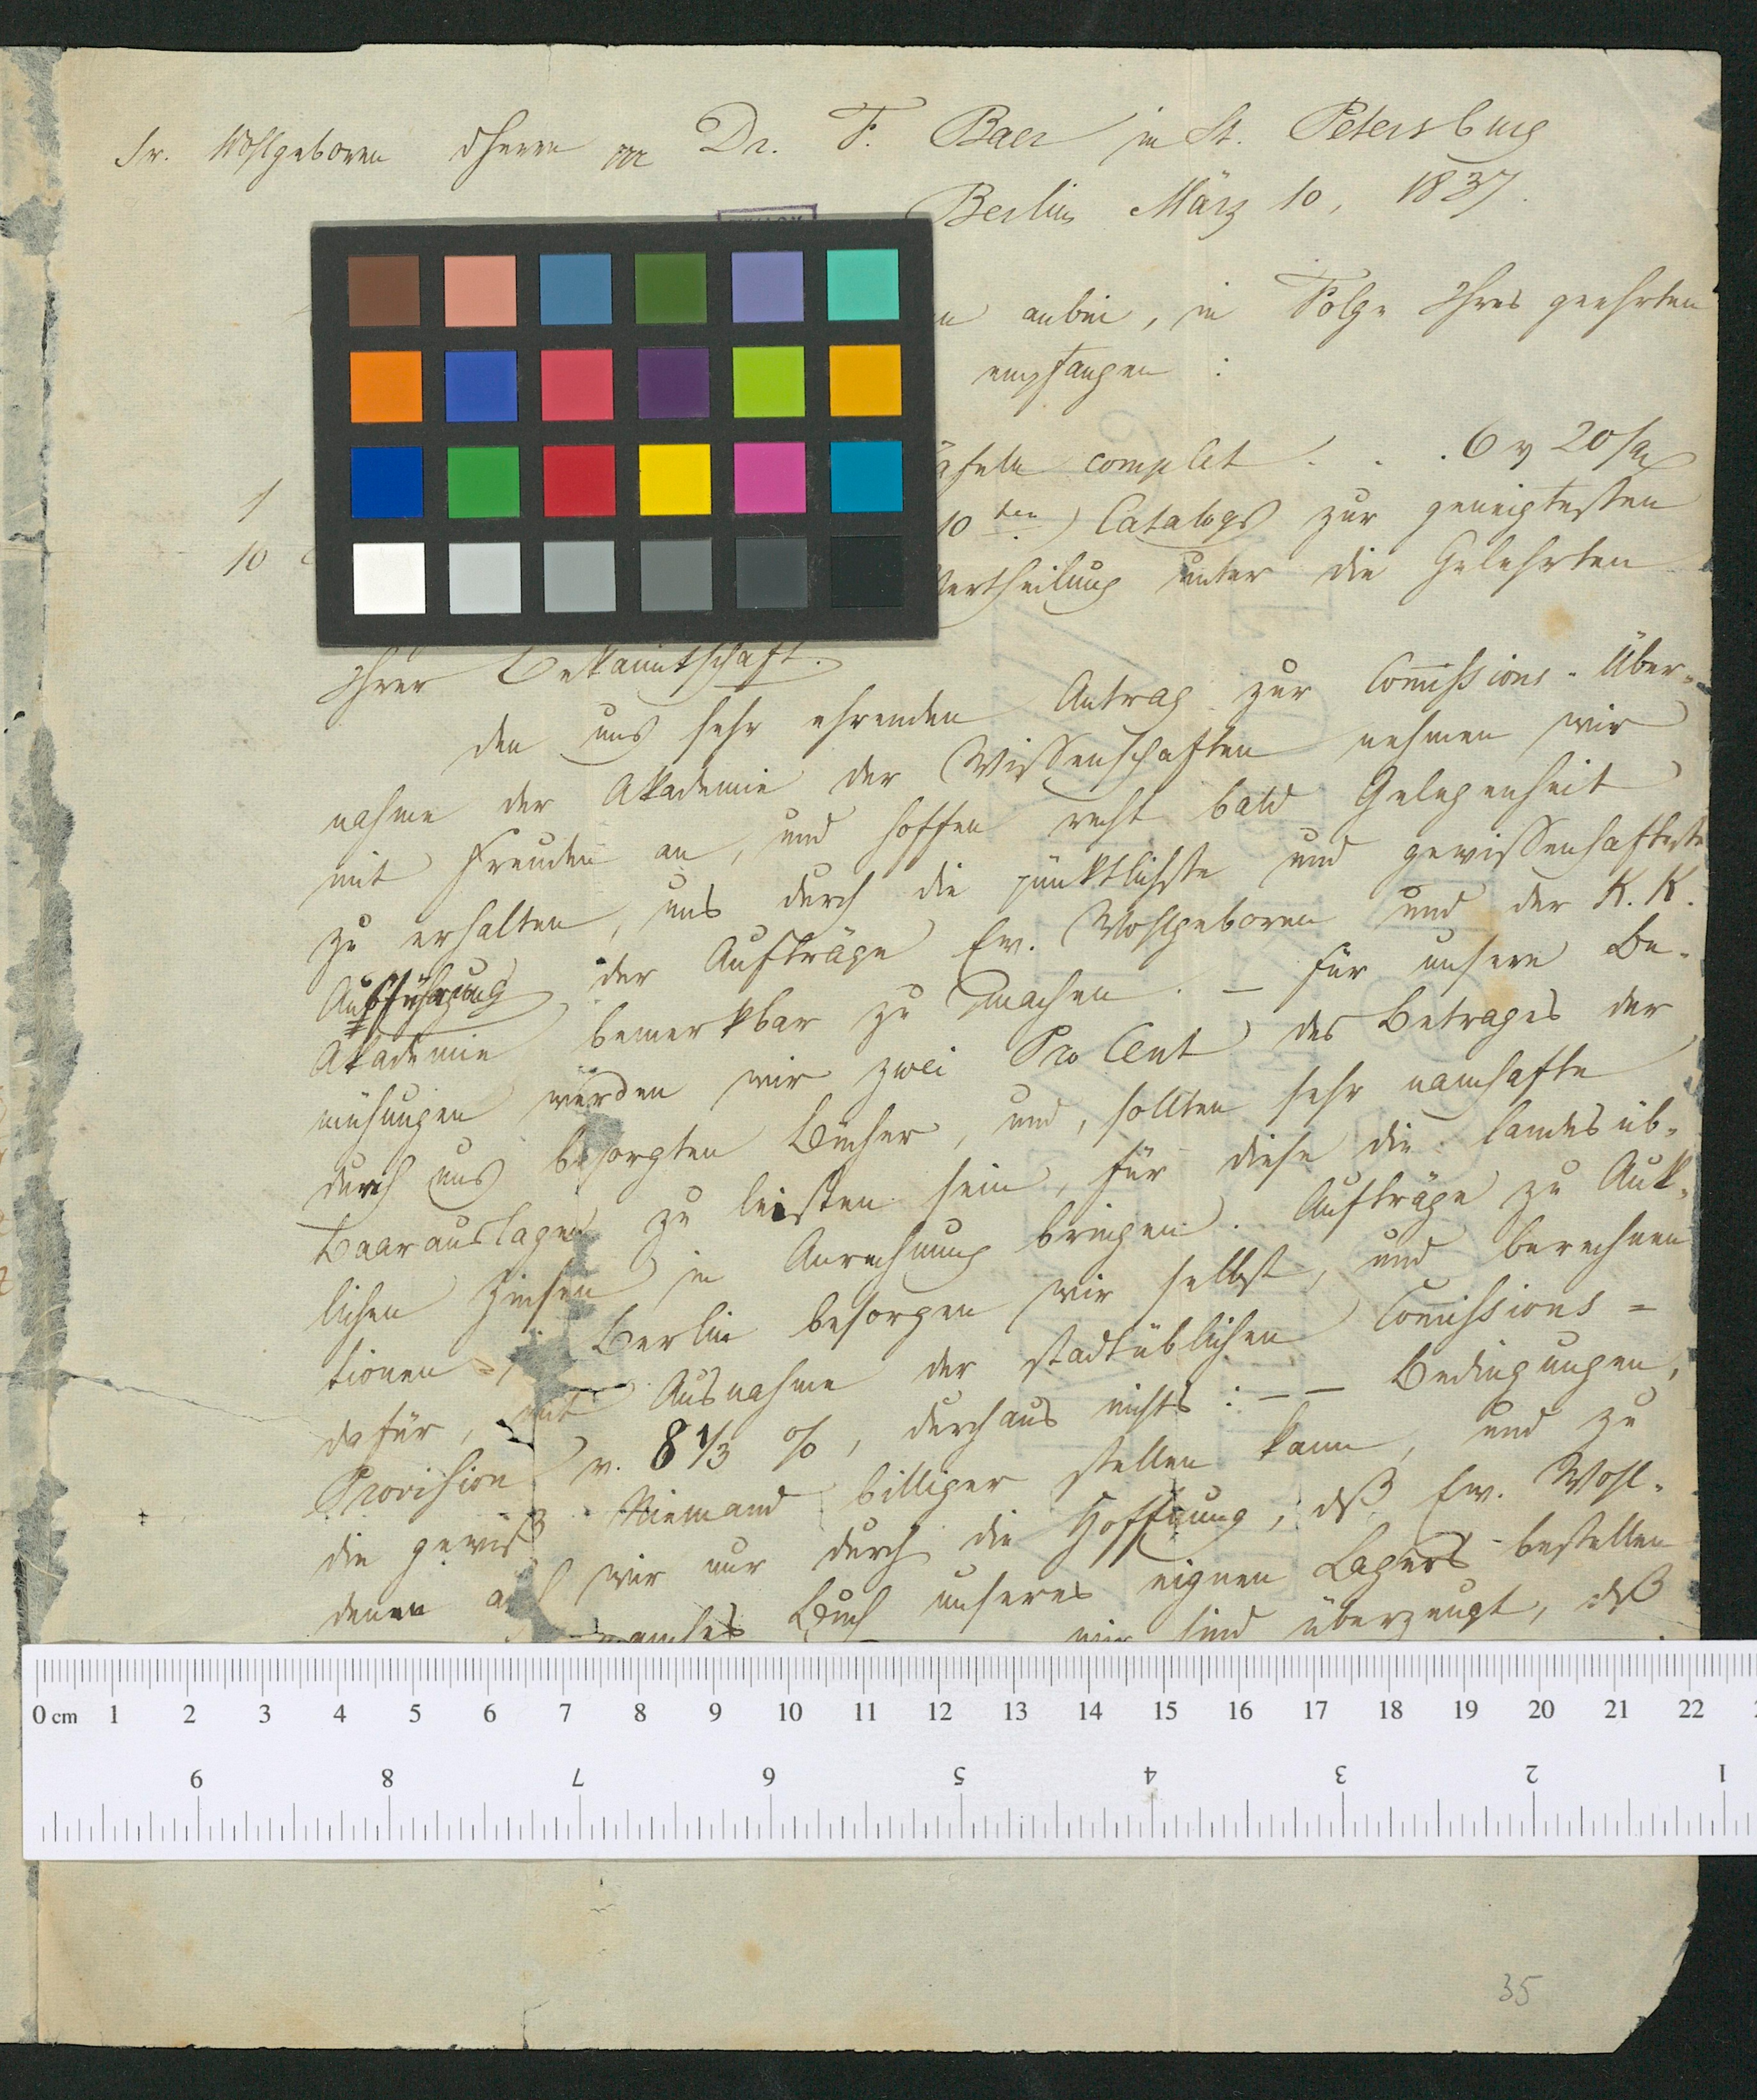 Sr. Wohlgeboren Herrn Dr. F. Baer in St. Petersburg
Berlin März 10, 1837.
anbei, in Folge Ihres geehrten
empfangen :
complet . . . 6 20
1
10 10ten) Catalogs zur geneigtesten
Vertheilung unter die Gelehrten
Ihrer Bekanntschaft.
Den uns sehr ehrenden Antrag zur Commissions-Über-
nahme der Akademie der Wissenschaften nehmen wir
mit Freuden an, und hoffen recht bald Gelegenheit
zu erhalten, uns durch die pünktlichste und gewissenhafteste
Ausführung der Aufträge Ew. Wohlgeboren und der K. K.
Akademie bemerkbar zu machen. — Für unsere Be-
mühungen würden wir zwei Pro Cent des Betrages der
durch uns besorgten Bücher, und, sollten sehr namhafte
Baarauslagen zu leisten sein, für diese die landesüb-
lichen Zinsen in Anrechnung bringen. Aufträge zu Auk-
tionen Berlin besorgen wir selbst, und berechnen
dafür, mit Ausnahme der stadtüblichen Commissions =
Provision v. 8 1/3 %, durchaus nichts : — — Bedingungen,
die gewiß Niemand billiger stellen kann, und zu
denen wir nur durch die Hoffnung, dß Ew. Wohl-
manches Buch unseres eignen Lagers bestellen
wir sind überzeugt, dß
0 cm 1 2 3 4 5 6 7 8 9 10 11 12 13 14 15 16 17 18 19 20 21 22
9 8 7 6 5 4 3 2 1
35